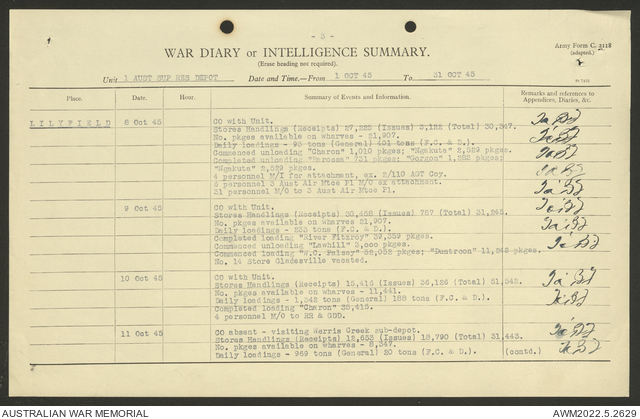 - 3 -
Army Form C. 2118
(adapted.)
WAR DIARY or INTELLIGENCE SUMMARY.
(Erase heading not required).
Unit 1 AUST SUP RES DEPOT Date and Time.—From 1 OCT 45 To 31 OCT 45
Place. Date. Hour. Summary of Events and Information. Remarks and references to Appendices, Diaries, &c.
LILYFIELD 8 Oct 45 CO with Unit.
Stores Handlings (Receipts) 27,225 (Issues) 3,122 (Total) 30,347.
No. pkges available on wharves - 21,907.
Daily loadings - 93 tons (General) 401 tons (F.C. & D.).
Commenced unloading "Charon" 1,010 pkges; "Ngakuta" 2,529 pkges.
Completed unloading "Barossa" 731 pkges; "Gorgon" 1,282 pkges;
"Ngakuta" 2,529 pkges.
4 personnel M/I for attachment, ex. 2/110 AGT Coy.
6 personnel 3 Aust Air Mtce Pl M/O ex attachment.
31 personnel M/O to 3 Aust Air Mtce Pl.
9 Oct 45 CO with Unit.
Stores Handlings (Receipts) 30,458 (Issues) 787 (Total) 31,245.
No. pkges available on wharves - 21,907.
Daily loadings - 233 tons (F.C. & D.).
Completed loading "River Fitzroy" 39,359 pkges.
Commenced unloading "Lawhill" 3,000 pkges.
Completed loading "W.C. Palsey" 52,052 pkges; "Duntroon" 11,242 pkges.
No. 14 Store Gladesville vacated.
10 Oct 45 CO with Unit.
Stores Handlings (Receipts) 15,416 (Issues) 36,126 (Total) 51,542.
No. pkges available on wharves - 11,441.
Daily loadings - 1,342 tons (General) 188 tons (F.C. & D.).
Completed loading "Charon" 38,415.
4 personnel M/O to RH & GDD.
11 Oct 45 CO absent - visiting Werris Creek sub-depot.
Stores Handlings (Receipts) 12,653 (Issues) 18,790 (Total) 31,443.
No. pkges available on wharves - 8,347.
Daily loadings - 969 tons (General) 20 tons (F.C. & D.). (contd.)
AUSTRALIAN WAR MEMORIAL
AWM2022.5.2629